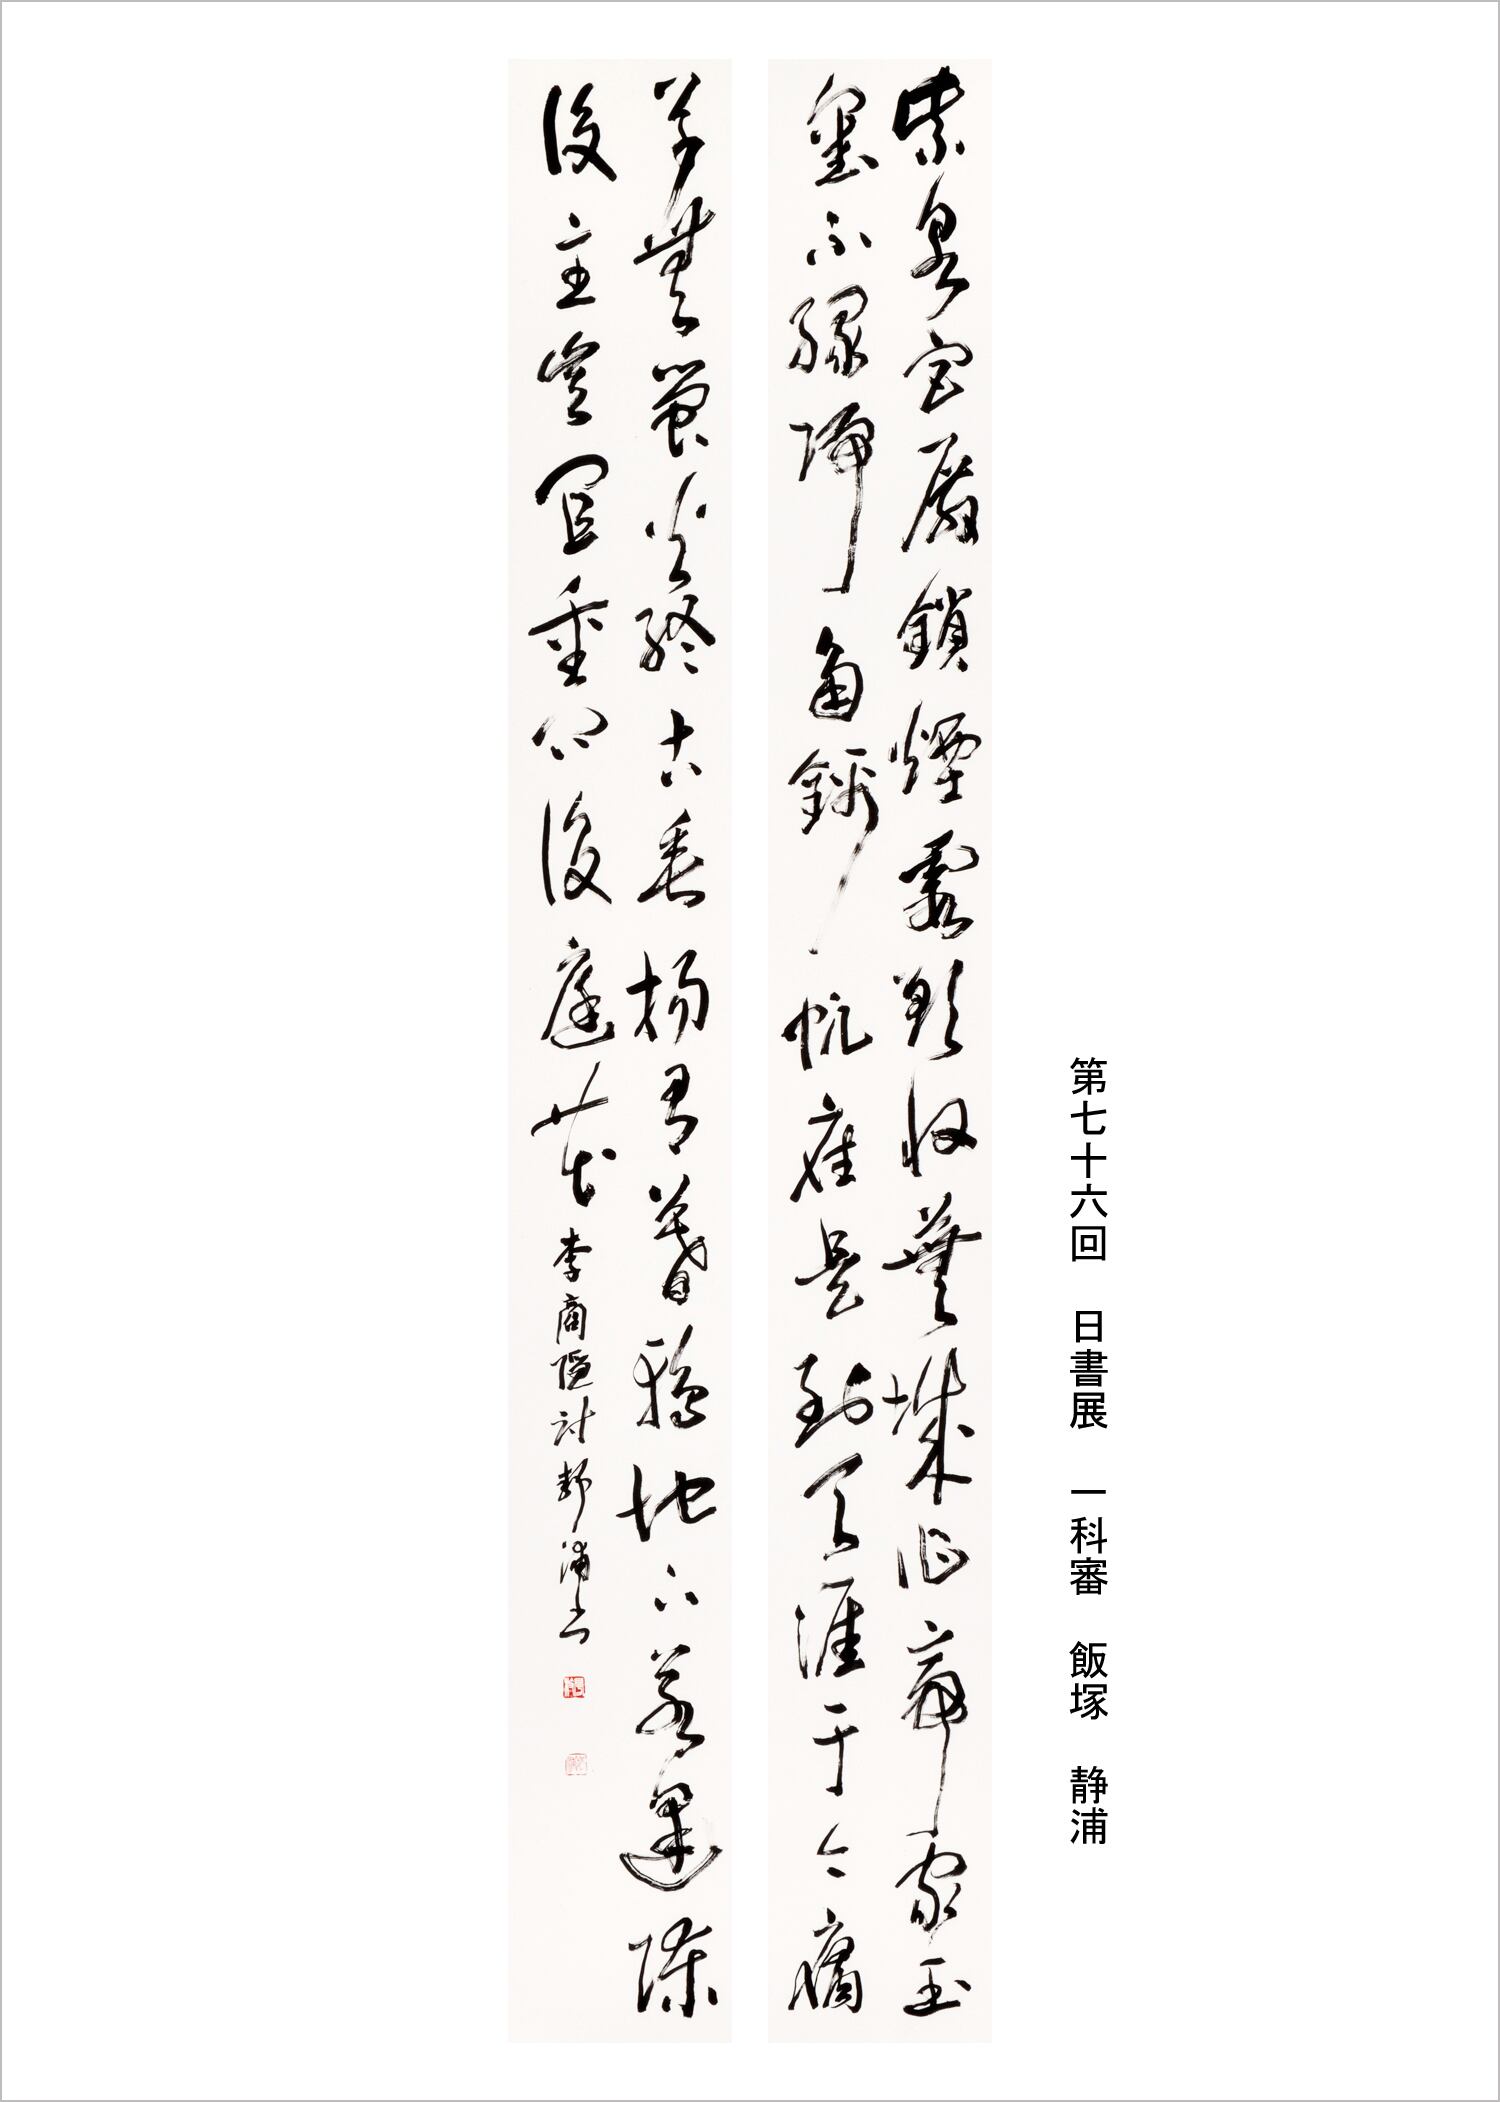 第七十六回 日書展 一科審 飯塚 静浦
紫泉宮殿鎖煙霞欲取蕪城作帝家玉
璽不縁歸角錦帆應是到天涯于今腐
草無螢火終古垂楊有暮鴉地下若逢陳
後主豈宜重問後庭花 李商隠詩 静浦書